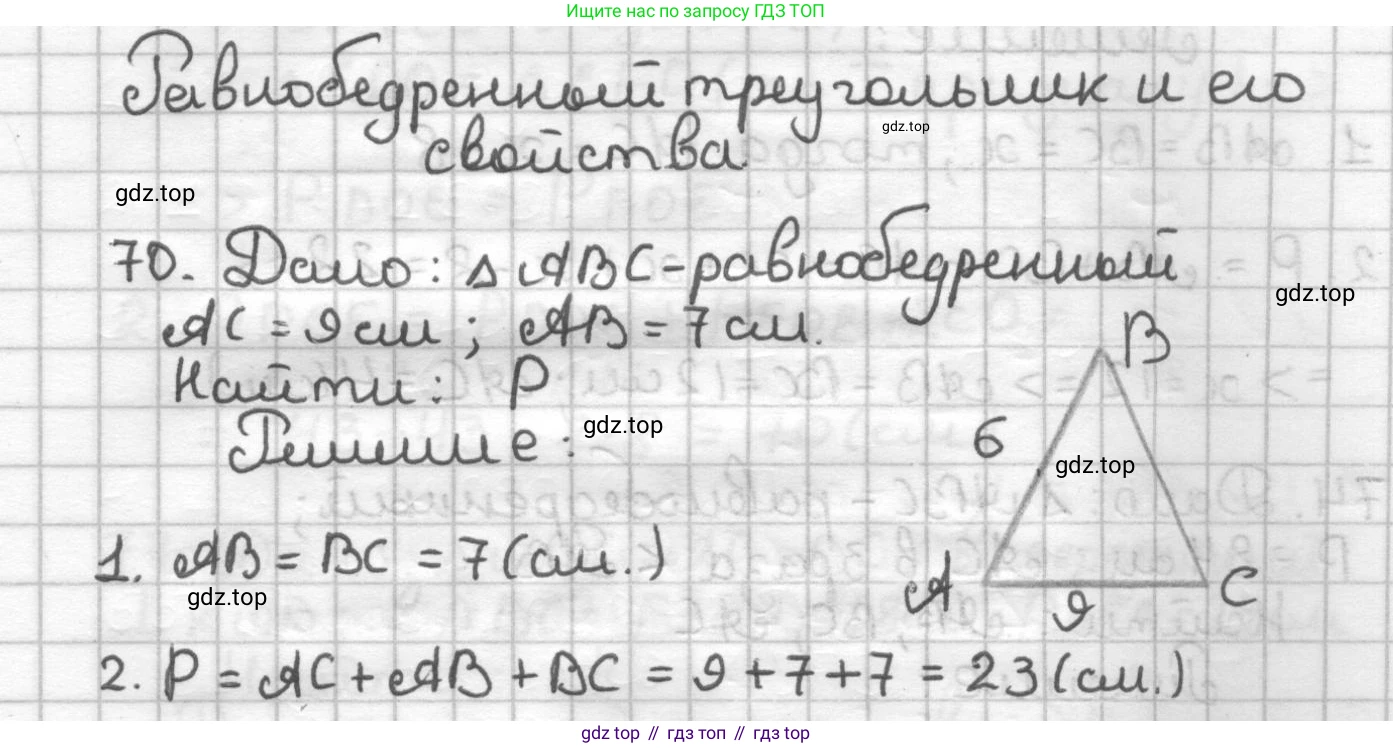 Ищите нас по запросу ГДЗ ТОП
Равнобедренный треугольник и его
gdz.top
свойства
gdz.top
70. Дано: Δ ABC - равнобедренный
gdz.top
AC = 9 см ; AB = 7 см.
B
Найти: P
Решение:
gdz.top
6
gdz.top
1. AB = BC = 7 (см.)
gdz.top
A
9
C
2. P = AC + AB + BC = 9 + 7 + 7 = 23 (см.)
gdz.top // гдз топ // гдз.top